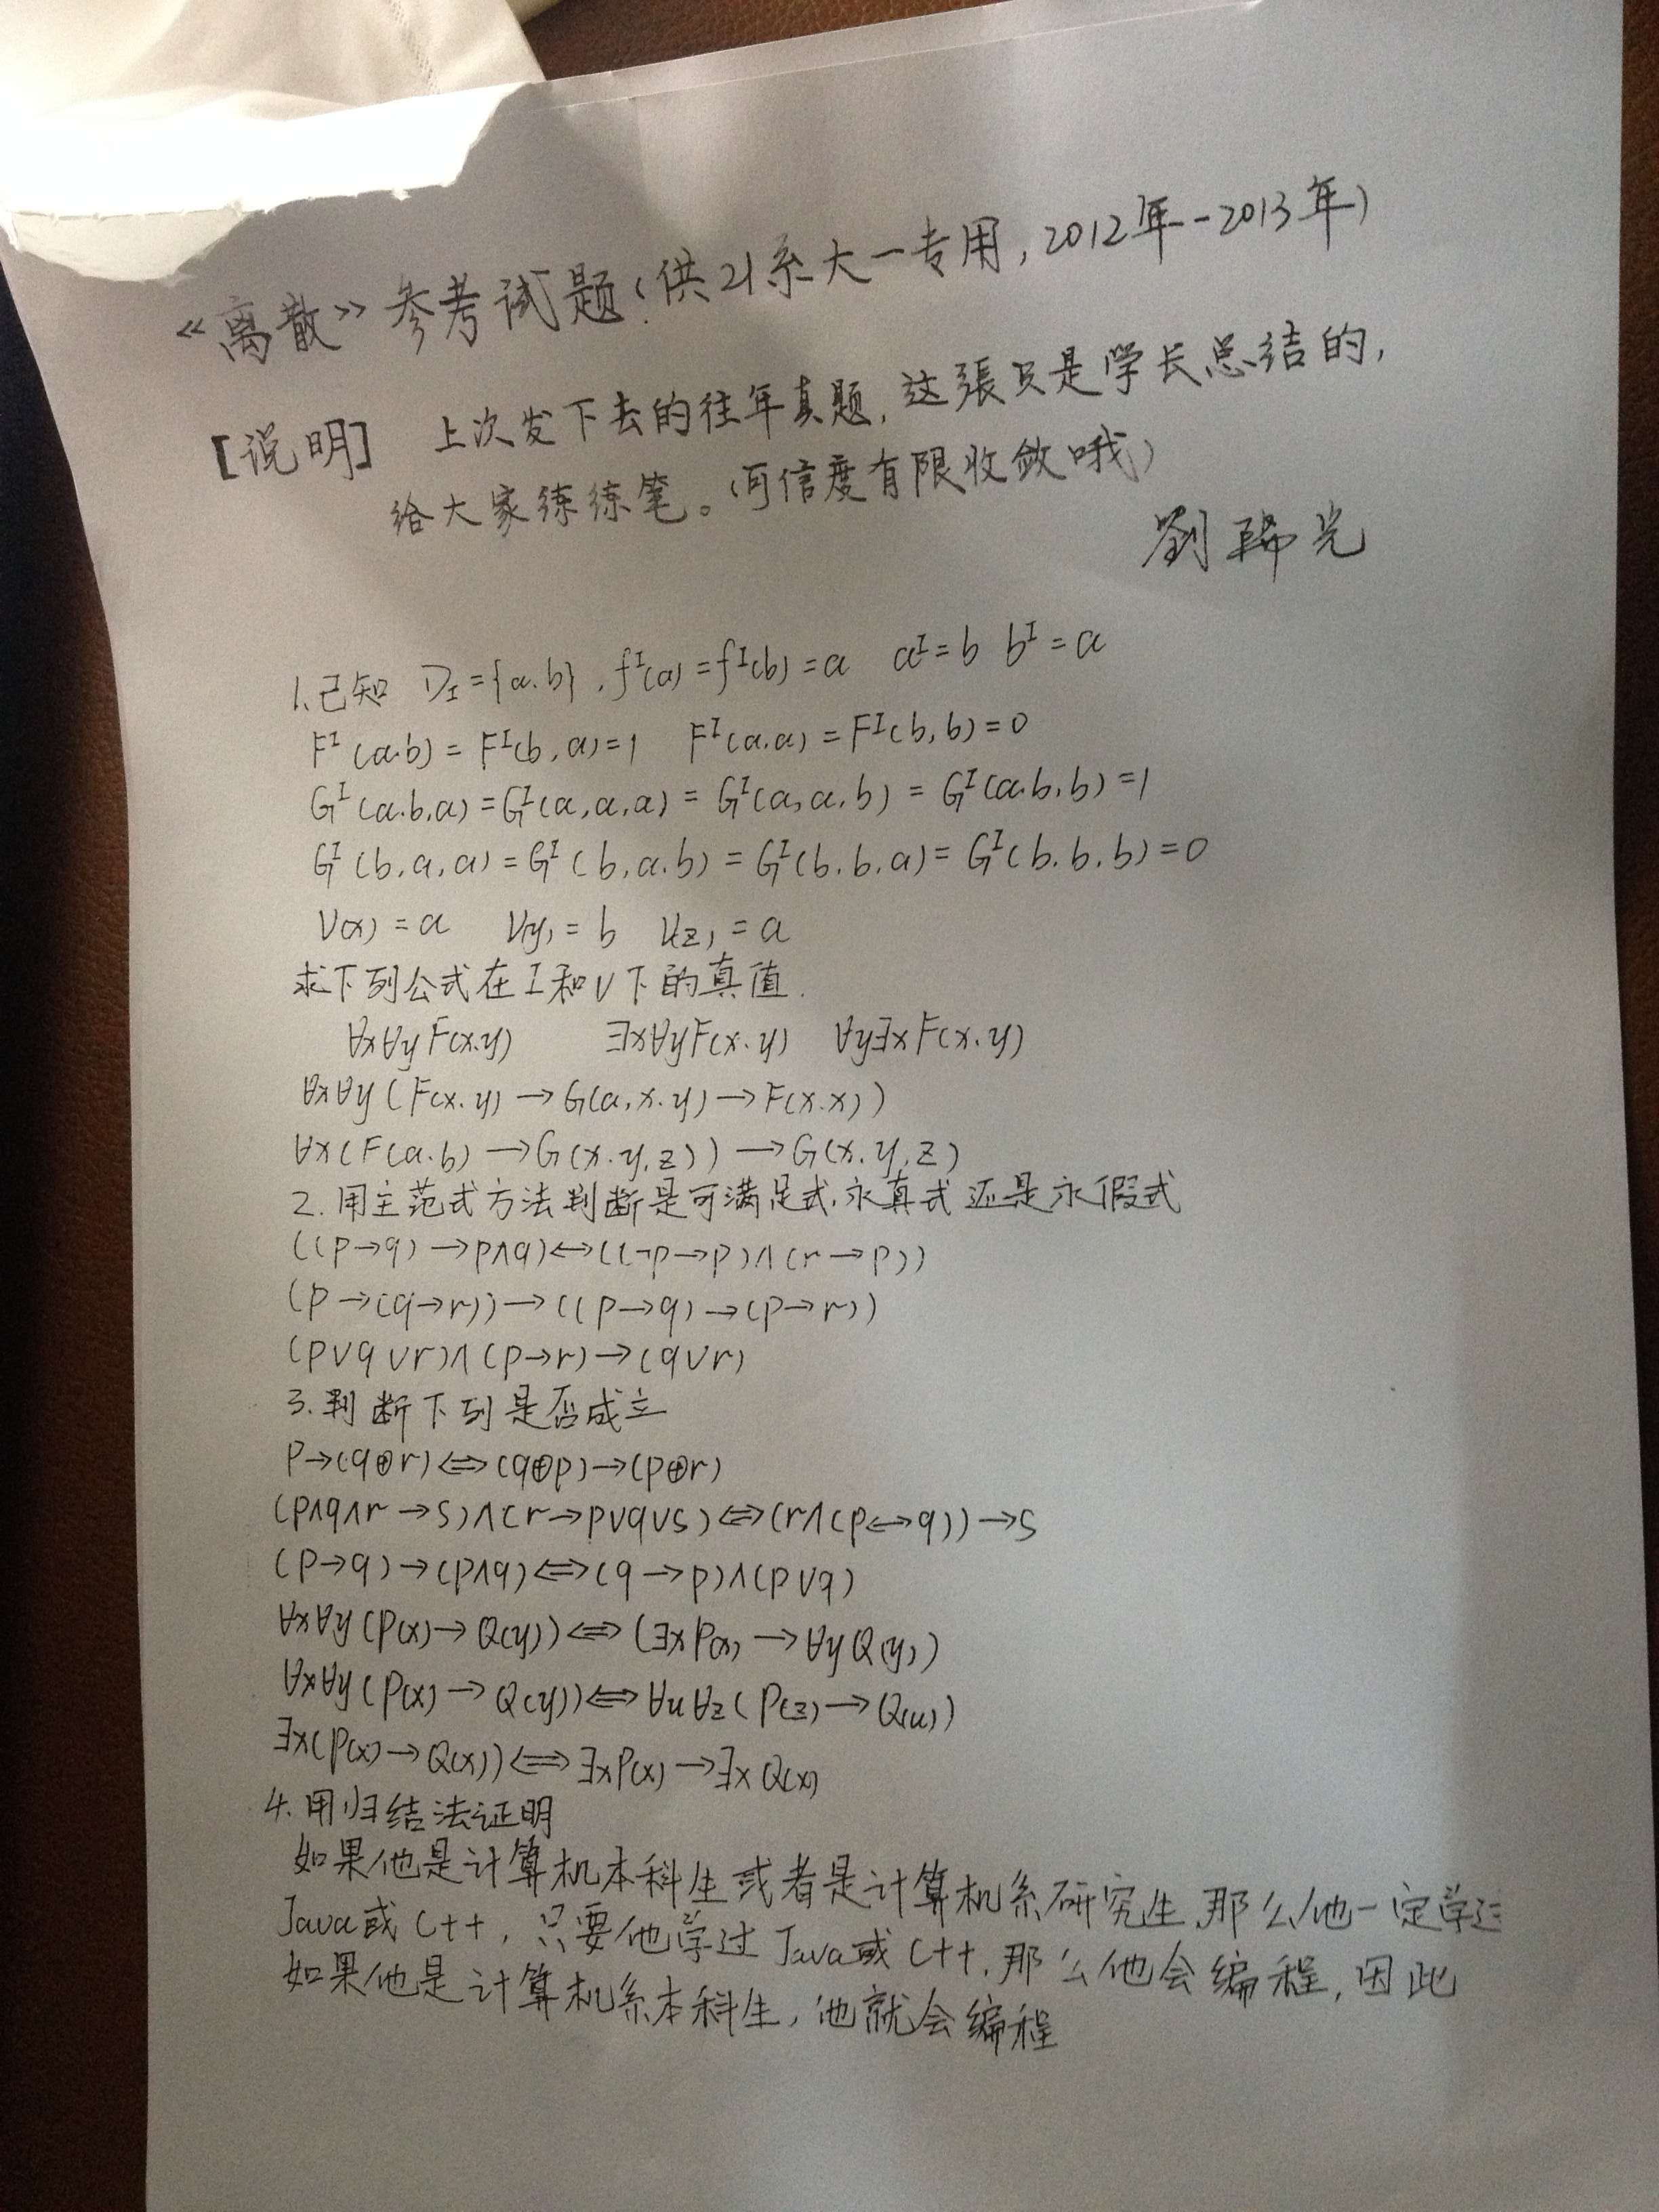 《离散》参考试题(供21系大一专用,2012年-2013年)
[说明] 上次发下去的往年真题,这張只是学长总结的,
给大家练练笔。(可信度有限收敛哦)
劉 光
1.已知 D_I={a.b},f^I(a)=f^I(b)=a a^I=b b^I=a
F^I(a.b)=F^I(b,a)=1 F^I(a.a)=F^I(b,b)=0
G^I(a.b,a)=G^I(a,a,a)=G^I(a,a,b)=G^I(a.b,b)=1
G^I(b,a,a)=G^I(b,a.b)=G^I(b.b,a)=G^I(b.b,b)=0
V(x)=a V(y)=b V(z)=a
求下列公式在I和V下的真值.
∀x∀yF(x.y) ∃x∀yF(x.y) ∀y∃xF(x.y)
∀x∀y(F(x.y)→G(a,x.y)→F(x.x))
∀x(F(a.b)→G(x.y,z))→G(x.y,z)
2.用主范式方法判断是可满足式,永真式还是永假式
((p→q)→p∧q)↔((¬p→p)∧(r→p))
(p→(q→r))→((p→q)→(p→r))
(p∨q∨r)∧(p→r)→(q∨r)
3.判断下列是否成立
P→(q⊕r)⇔(q⊕p)→(p⊕r)
(p∧q∧r→s)∧(r→p∨q∨s)⇔(r∧(p↔q))→s
(p→q)→(p∧q)⇔(q→p)∧(p∨q)
∀x∀y(P(x)→Q(y))⇔(∃xP(x)→∀yQ(y))
∀x∀y(P(x)→Q(y))⇔∀u∀z(P(z)→Q(u))
∃x(P(x)→Q(x))⇔∃xP(x)→∃xQ(x)
4.用归结法证明
如果他是计算机本科生或者是计算机系研究生,那么他一定学过
Java或C++,只要他学过Java或C++,那么他会编程,因此
如果他是计算机系本科生,他就会编程